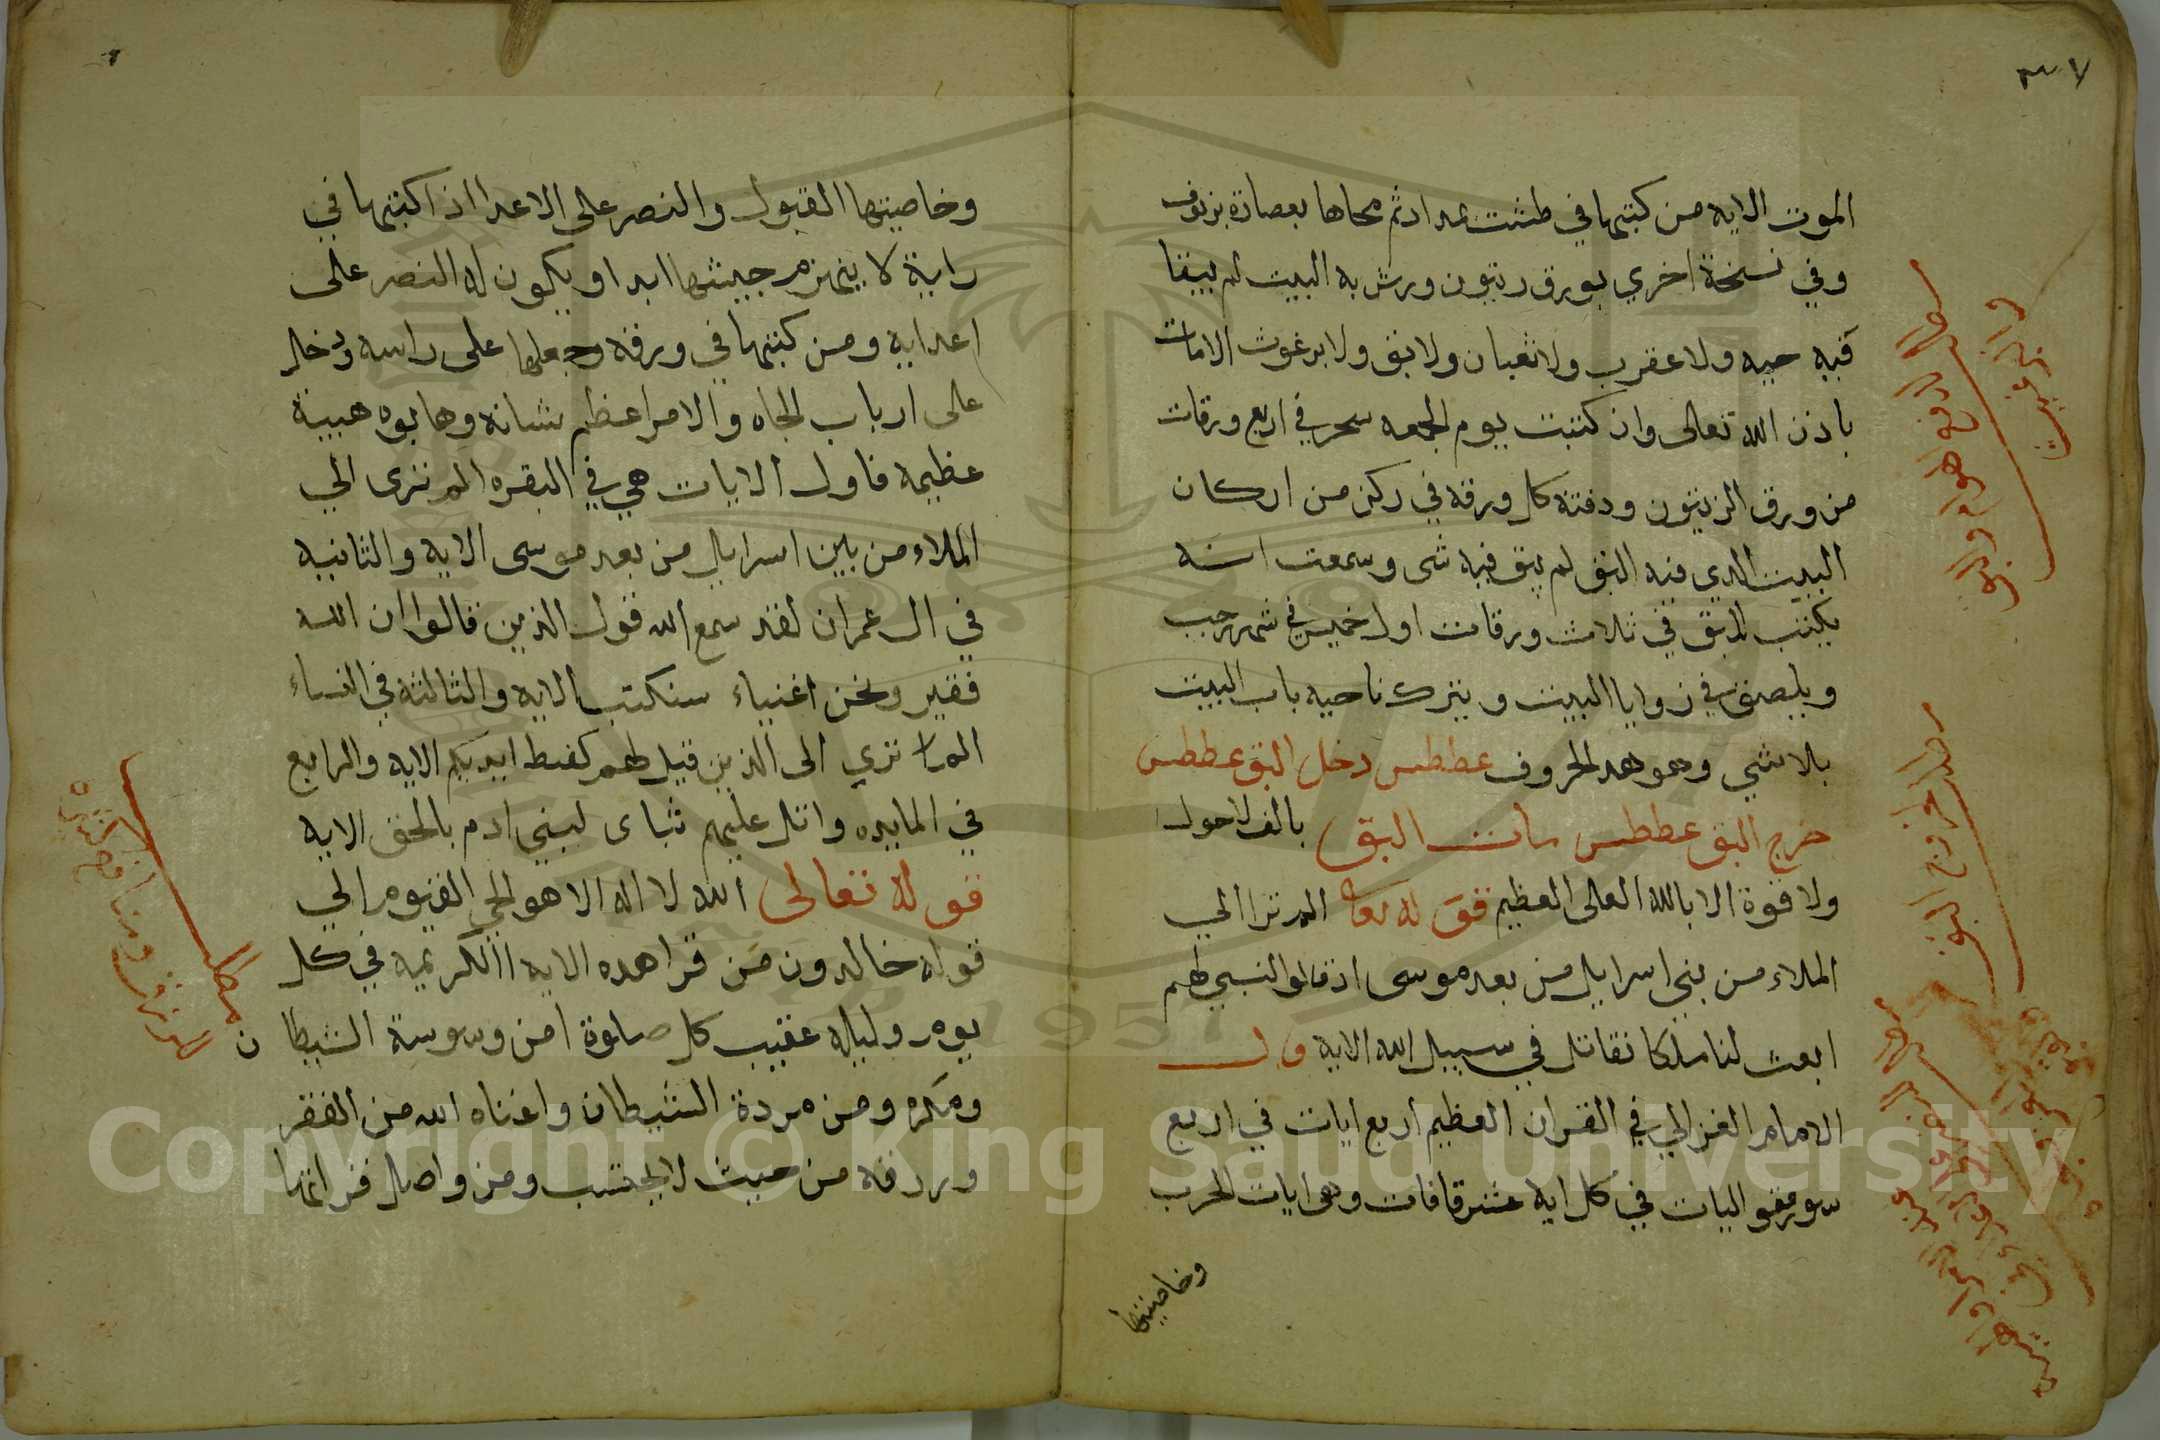 ٣٧
الموت الايه من كتبها في طشت بمداد ثم محاها بعصارة برنوف
وفي نسخة اخري بورق زيتون ورش به البيت لم يبقا
فيه حيه ولا عقرب ولا ثعبان ولا بق ولا برغوث الا مات
باذن الله تعالى وان كتبت يوم الجمعه سحر في اربع ورقات
من ورق الزيتون ودفنة كل ورقه في ركن من اركان
البيت الذي فيه البق لم يبق فيه شى وسمعت انه
يكتب للبق في ثلاث ورقات اول خميس في شهر رجب
ويلصق في زوايا البيت ويترك ناحيه باب البيت
بلا شي وهو هده الحروف عططس دخل البق عططس
خرج البق عططس مات البق بالف لاحول
ولا قوة الا بالله العلى العظيم قوله تعا الم ترا الي
الملاء من بني اسرايل من بعد موسى اذ قالوا لنبي لهم
ابعث لنا ملكا نقاتل في سبيل الله الايه قال
الامام الغزالي في القران العظيم اربع ايات في اربع
سور متواليات في كل ايه عشر قافات وهى ايات الحرب
وخاصيتها
وخاصيتها القبول والنصر على الاعدا اذا كتبتها في
راية لا ينهزم جيشها ابدا ويكون له النصر على
اعدايه ومن كتبها في ورقه وجعلها على راسه ودخل
على ارباب الجاه والامر اعظم شانه وهابوه هيبة
عظيمه فاول الايات هي في البقره الم ترى الي
الملاء من بين اسرايل من بعد موسى الايه والثانيه
في ال عمران لقد سمع الله قول الذين قالوا ان الله
فقير ونحن اغنياء سنكتب الايه والثالثه في النساء
الم تري الى الذين قيل لهم كفوا ايديكم الايه والرابع
في المايده واتل عليهم نباى لبني ادم بالحق الايه
قوله تعالى الله لا اله الا هو الحي القيوم الي
قوله خالدون من قرا هده الايه الكريمه في كل
يوم وليله عقيب كل صلوة امن وسوسة الشيطا ن
ومكره ومن مردة الشيطان واغناه الله من الفقر
ورزقه من حيث لا يحتسب ومن واصل قراتها
مطلب لدفع الهوام والبق
والبراغيت
مطلب اخراج البق
مطلب
للرزق ومنافع كثيره